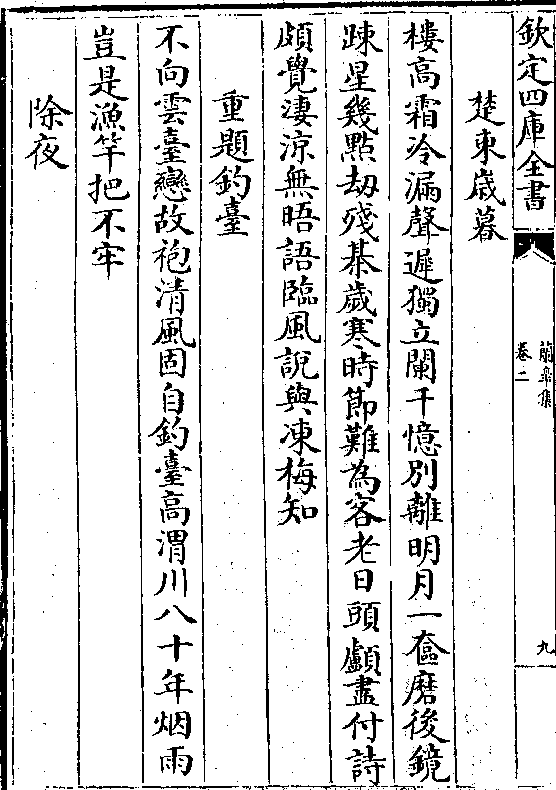 欽定四庫全書
蘭皐集
卷二
九
楚東歲暮
樓高霜冷漏聲遲獨立闌干憶別離明月一奩磨後鏡
踈星幾點刼殘棊歲寒時節難為客老日頭顱盡付詩
頗覺淒涼無晤語臨風說與凍梅知
重題釣臺
不向雲臺戀故袍清風固自釣臺高渭川八十年烟雨
豈是漁竿把不牢
除夜